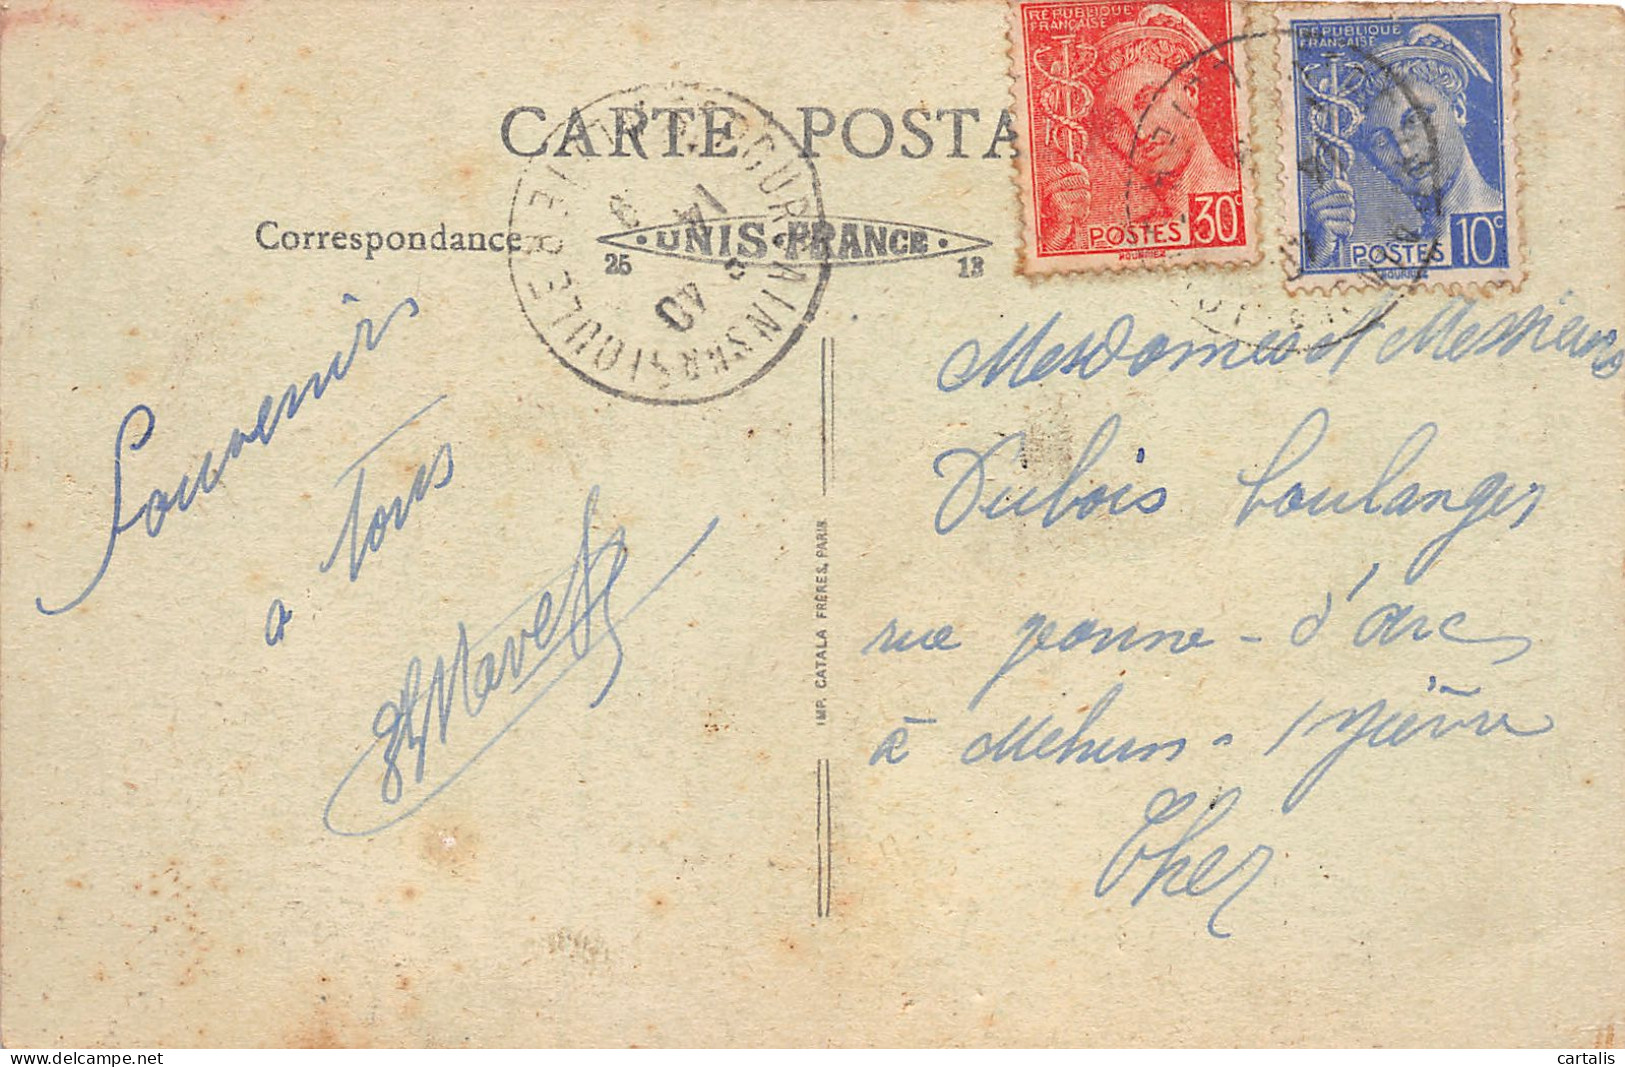 CARTE POSTA
RÉPUBLIQUE
FRANÇAISE
30c
POSTES
RÉPUBLIQUE
FRANÇAISE
POSTES 10c
Correspondance
UNIS-FRANCE
25 13
14
40
Souvenirs
a tous
Mesdames et Messieurs
Dubois boulanger
rue jeanne-d'arc
à Mehun-s/yèvre
Cher
IMP. CATALA FRÈRES, PARIS
cartalis